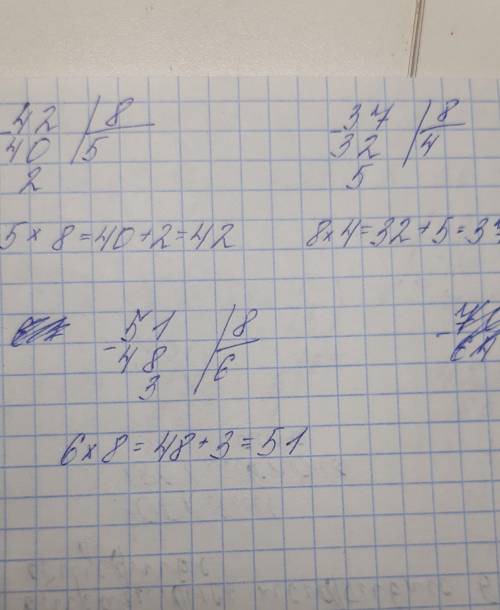 -42 | 8
40 | 5
2
5 × 8 = 40 + 2 = 42
-37 | 8
32 | 4
5
8 × 4 = 32 + 5 = 37
-51 | 8
48 | 6
3
6 × 8 = 48 + 3 = 51
64